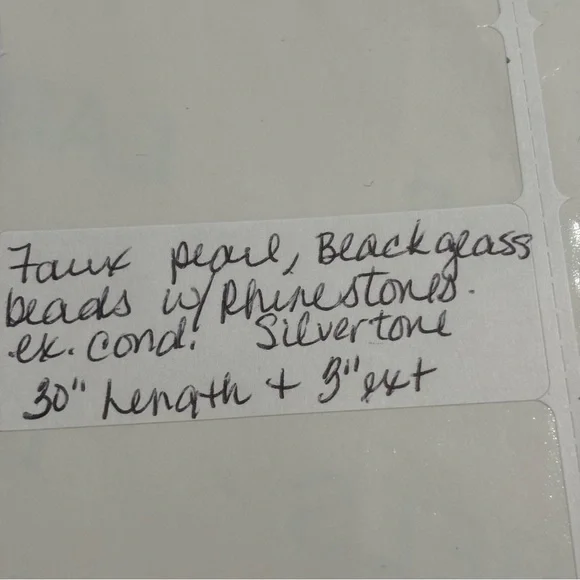 Faux pearl, Black glass
beads w/ Rhinestones.
ex. cond! Silvertone
30" Length + 3" ext